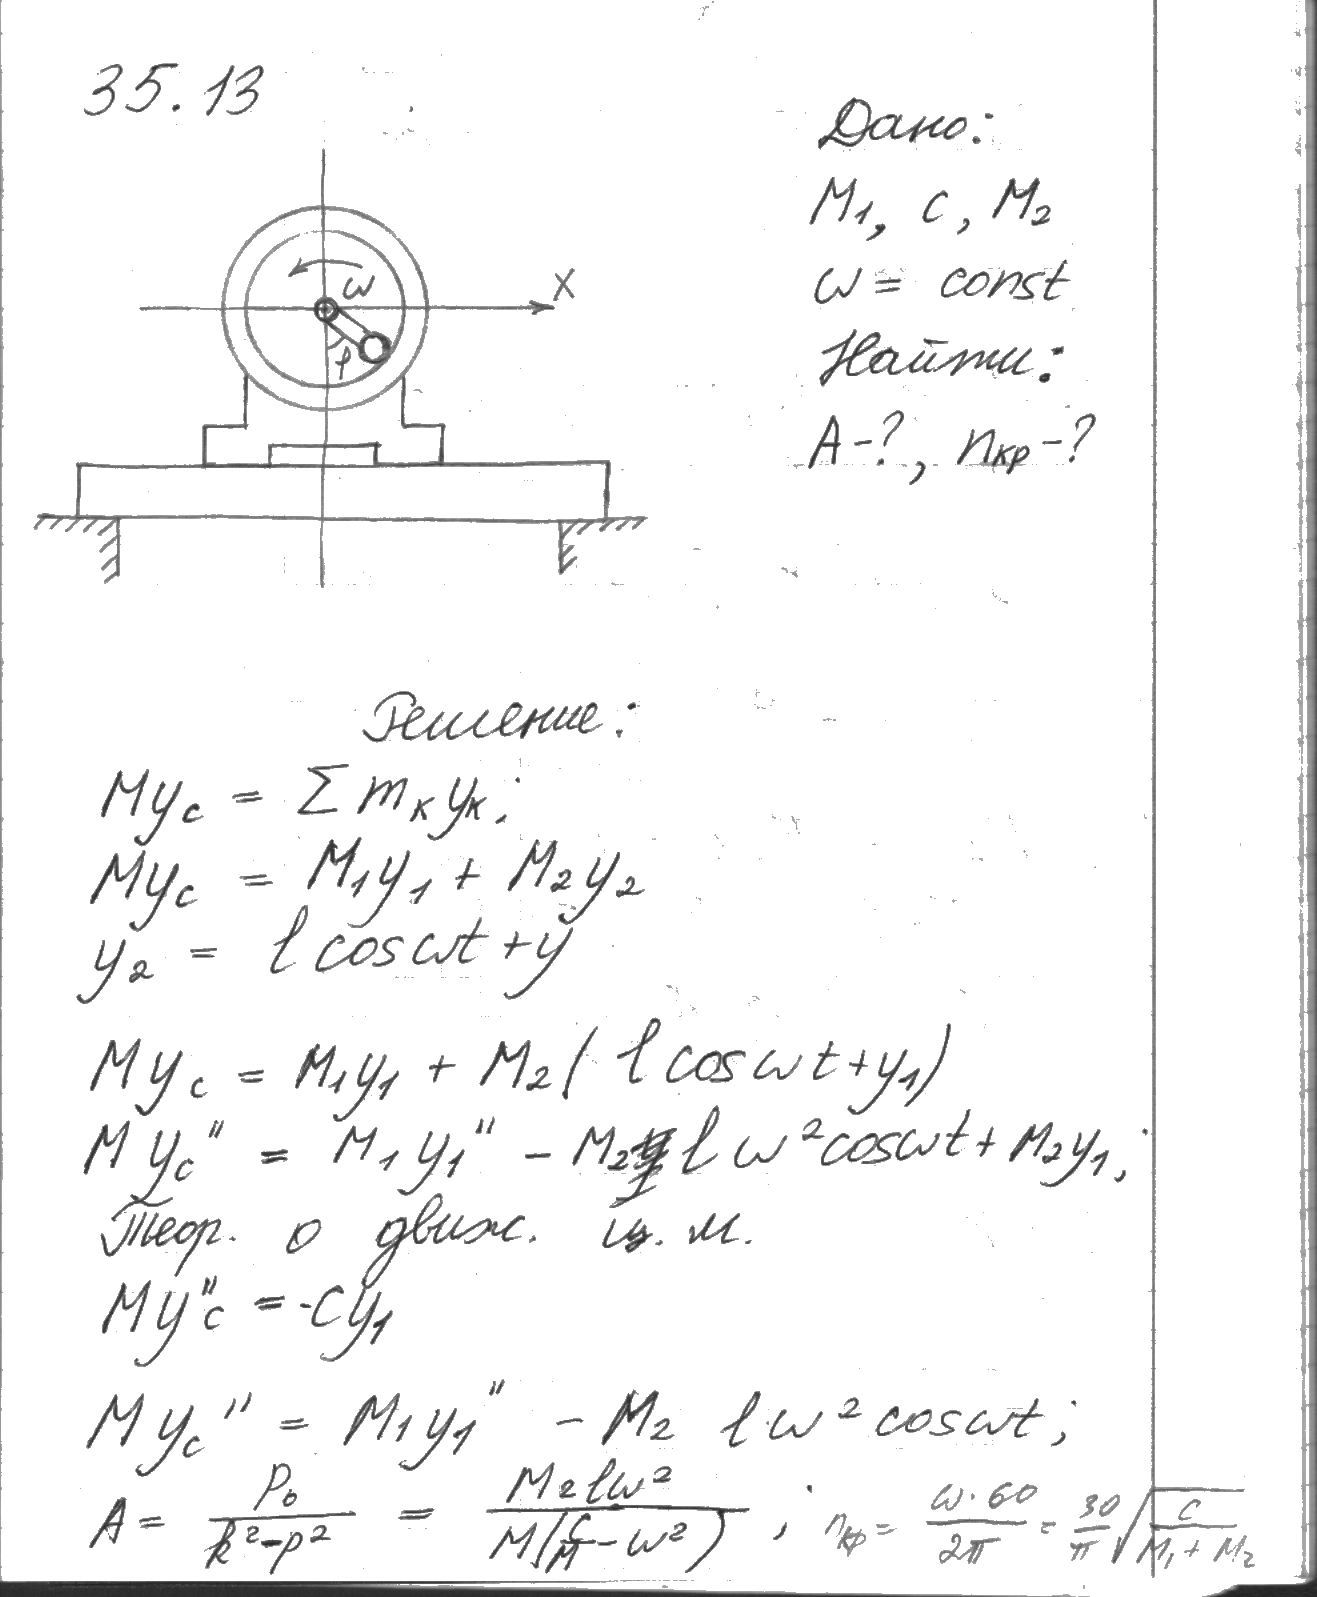 35.13
Дано:
M₁, c, M₂
ω = const
Найти:
A-?, nкр-?
ω
X
φ
Решение:
Myc = Σ mк yк;
Myc = M₁y₁ + M₂y₂
y₂ = l cos ωt + y
Myc = M₁y₁ + M₂(l cos ωt + y₁)
Myc'' = M₁y₁'' - M₂ l ω² cos ωt + M₂y₁;
Теор. о движ. ц. м.
My''c = -cy₁
Myc'' = M₁y₁'' - M₂ lω² cos ωt;
A = P₀/(k²-p²) = M₂lω²/(M(c/M - ω²)); nкр = ω·60/2π = 30/π √(c/(M₁ + M₂))